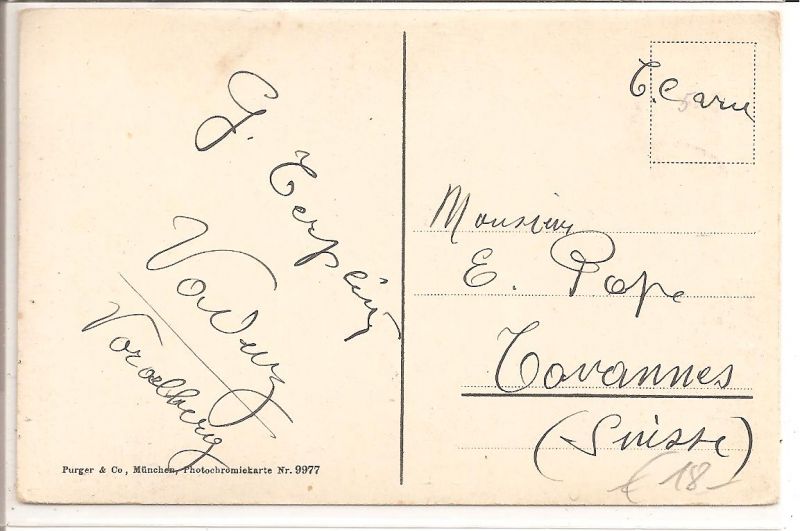 G.
Vaduz
Vorarlberg
Purger & Co., München, Photochromiekarte Nr. 9977
T. C. a. v. u.
Monsieur
E. Pape
Tavannes
(Suisse)
18-